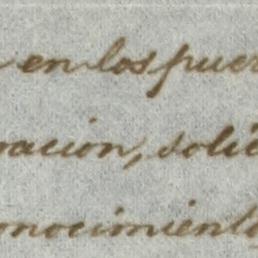 en los puer
ración, solic
onocimiento